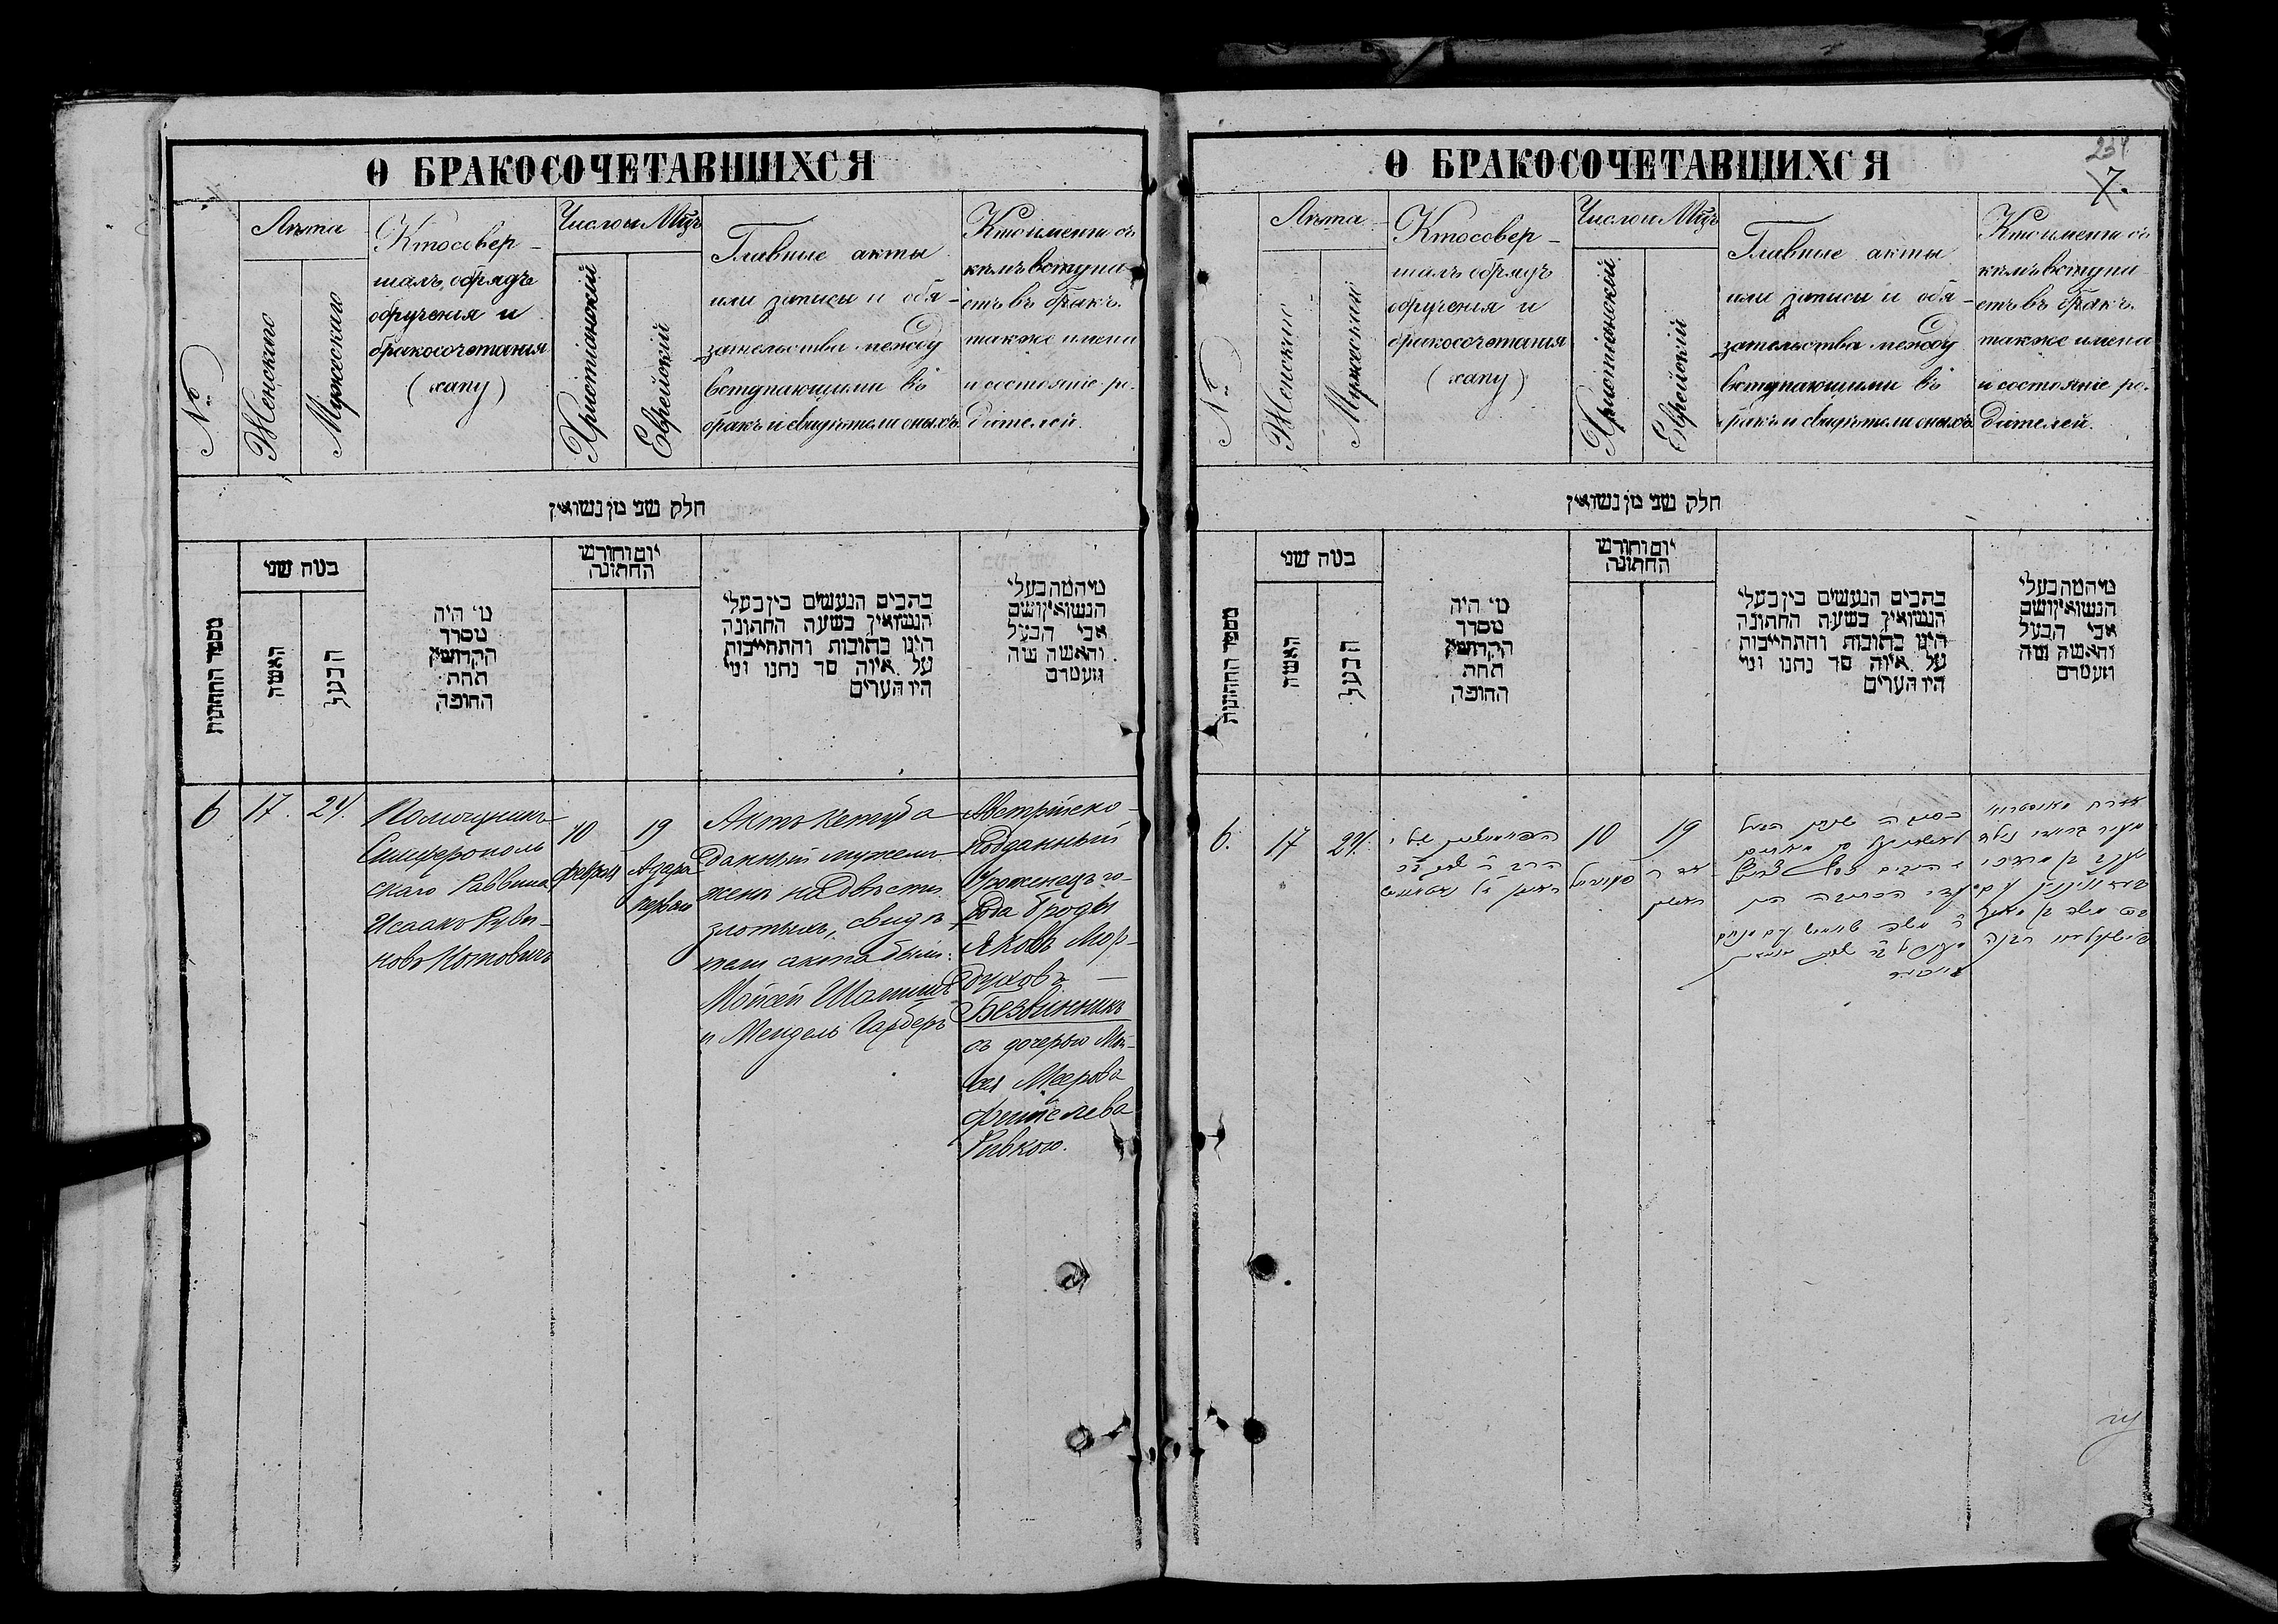 О БРАКОСОЧЕТАВШИХСЯ
№
Лѣта
Женскаго
Мужескаго
Кто совер-
шалъ обрядъ
обрученія и
бракосочетанія
(хапу)
Число и Мѣцъ
Христіанскій
Еврейскій
Главные акты
или записи и обя-
зательства между
вступающими въ
бракъ и свидѣтели оныхъ.
Кто имени съ
кѣмъ вступа
етъ въ бракъ.
также имена
и состояніе ро-
дителей.
חלק שני מן נשואין
מספר החתונות
בטה שני
האשה
הבעל
מי היה
מסדר
הקדושין
תחת
החופה
יום וחודש
החתונה
כתבים הנעשים בין בעלי
הנשואין בשעת החתונה
היינו כתובות והתחייבות
על איזה סך נתנו ומי
היו העדים
מי המה בעלי
הנשואין ושם
אבי הבעל
והאשה מה
מעמדם
6
17.
24.
Помощникъ
Симферополь
скаго Раввина
Исаакъ Руви-
новъ Котовичъ
10
февраля
19
Адара
первый
Актъ кетуба
данный мужемъ
женѣ на двѣсти
злотыхъ, свидѣ
тели акта были:
Мойсей Шамишъ
и Мендель Гарберъ
Австрійско-
подданный
Уроженецъ го-
рода Броды
Яковъ Мор-
духовъ
Безвинникъ
съ дочерью Мой-
сея Меерова
Фейтелева
Ривкою.
О БРАКОСОЧЕТАВШИХСЯ
234
7.
№
Лѣта
Женскаго
Мужескаго
Кто совер-
шалъ обрядъ
обрученія и
бракосочетанія
(хапу)
Число и Мѣцъ
Христіанскій
Еврейскій
Главные акты
или записи и обя-
зательства между
вступающими въ
бракъ и свидѣтели оныхъ.
Кто имени съ
кѣмъ вступа
етъ въ бракъ.
также имена
и состояніе ро-
дителей.
חלק שני מן נשואין
מספר החתונות
בטה שני
האשה
הבעל
מי היה
מסדר
הקדושין
תחת
החופה
יום וחודש
החתונה
כתבים הנעשים בין בעלי
הנשואין בשעת החתונה
היינו כתובות והתחייבות
על איזה סך נתנו ומי
היו העדים
מי המה בעלי
הנשואין ושם
אבי הבעל
והאשה מה
מעמדם
6.
17
24.
10
19
יעקב בן מרדכי